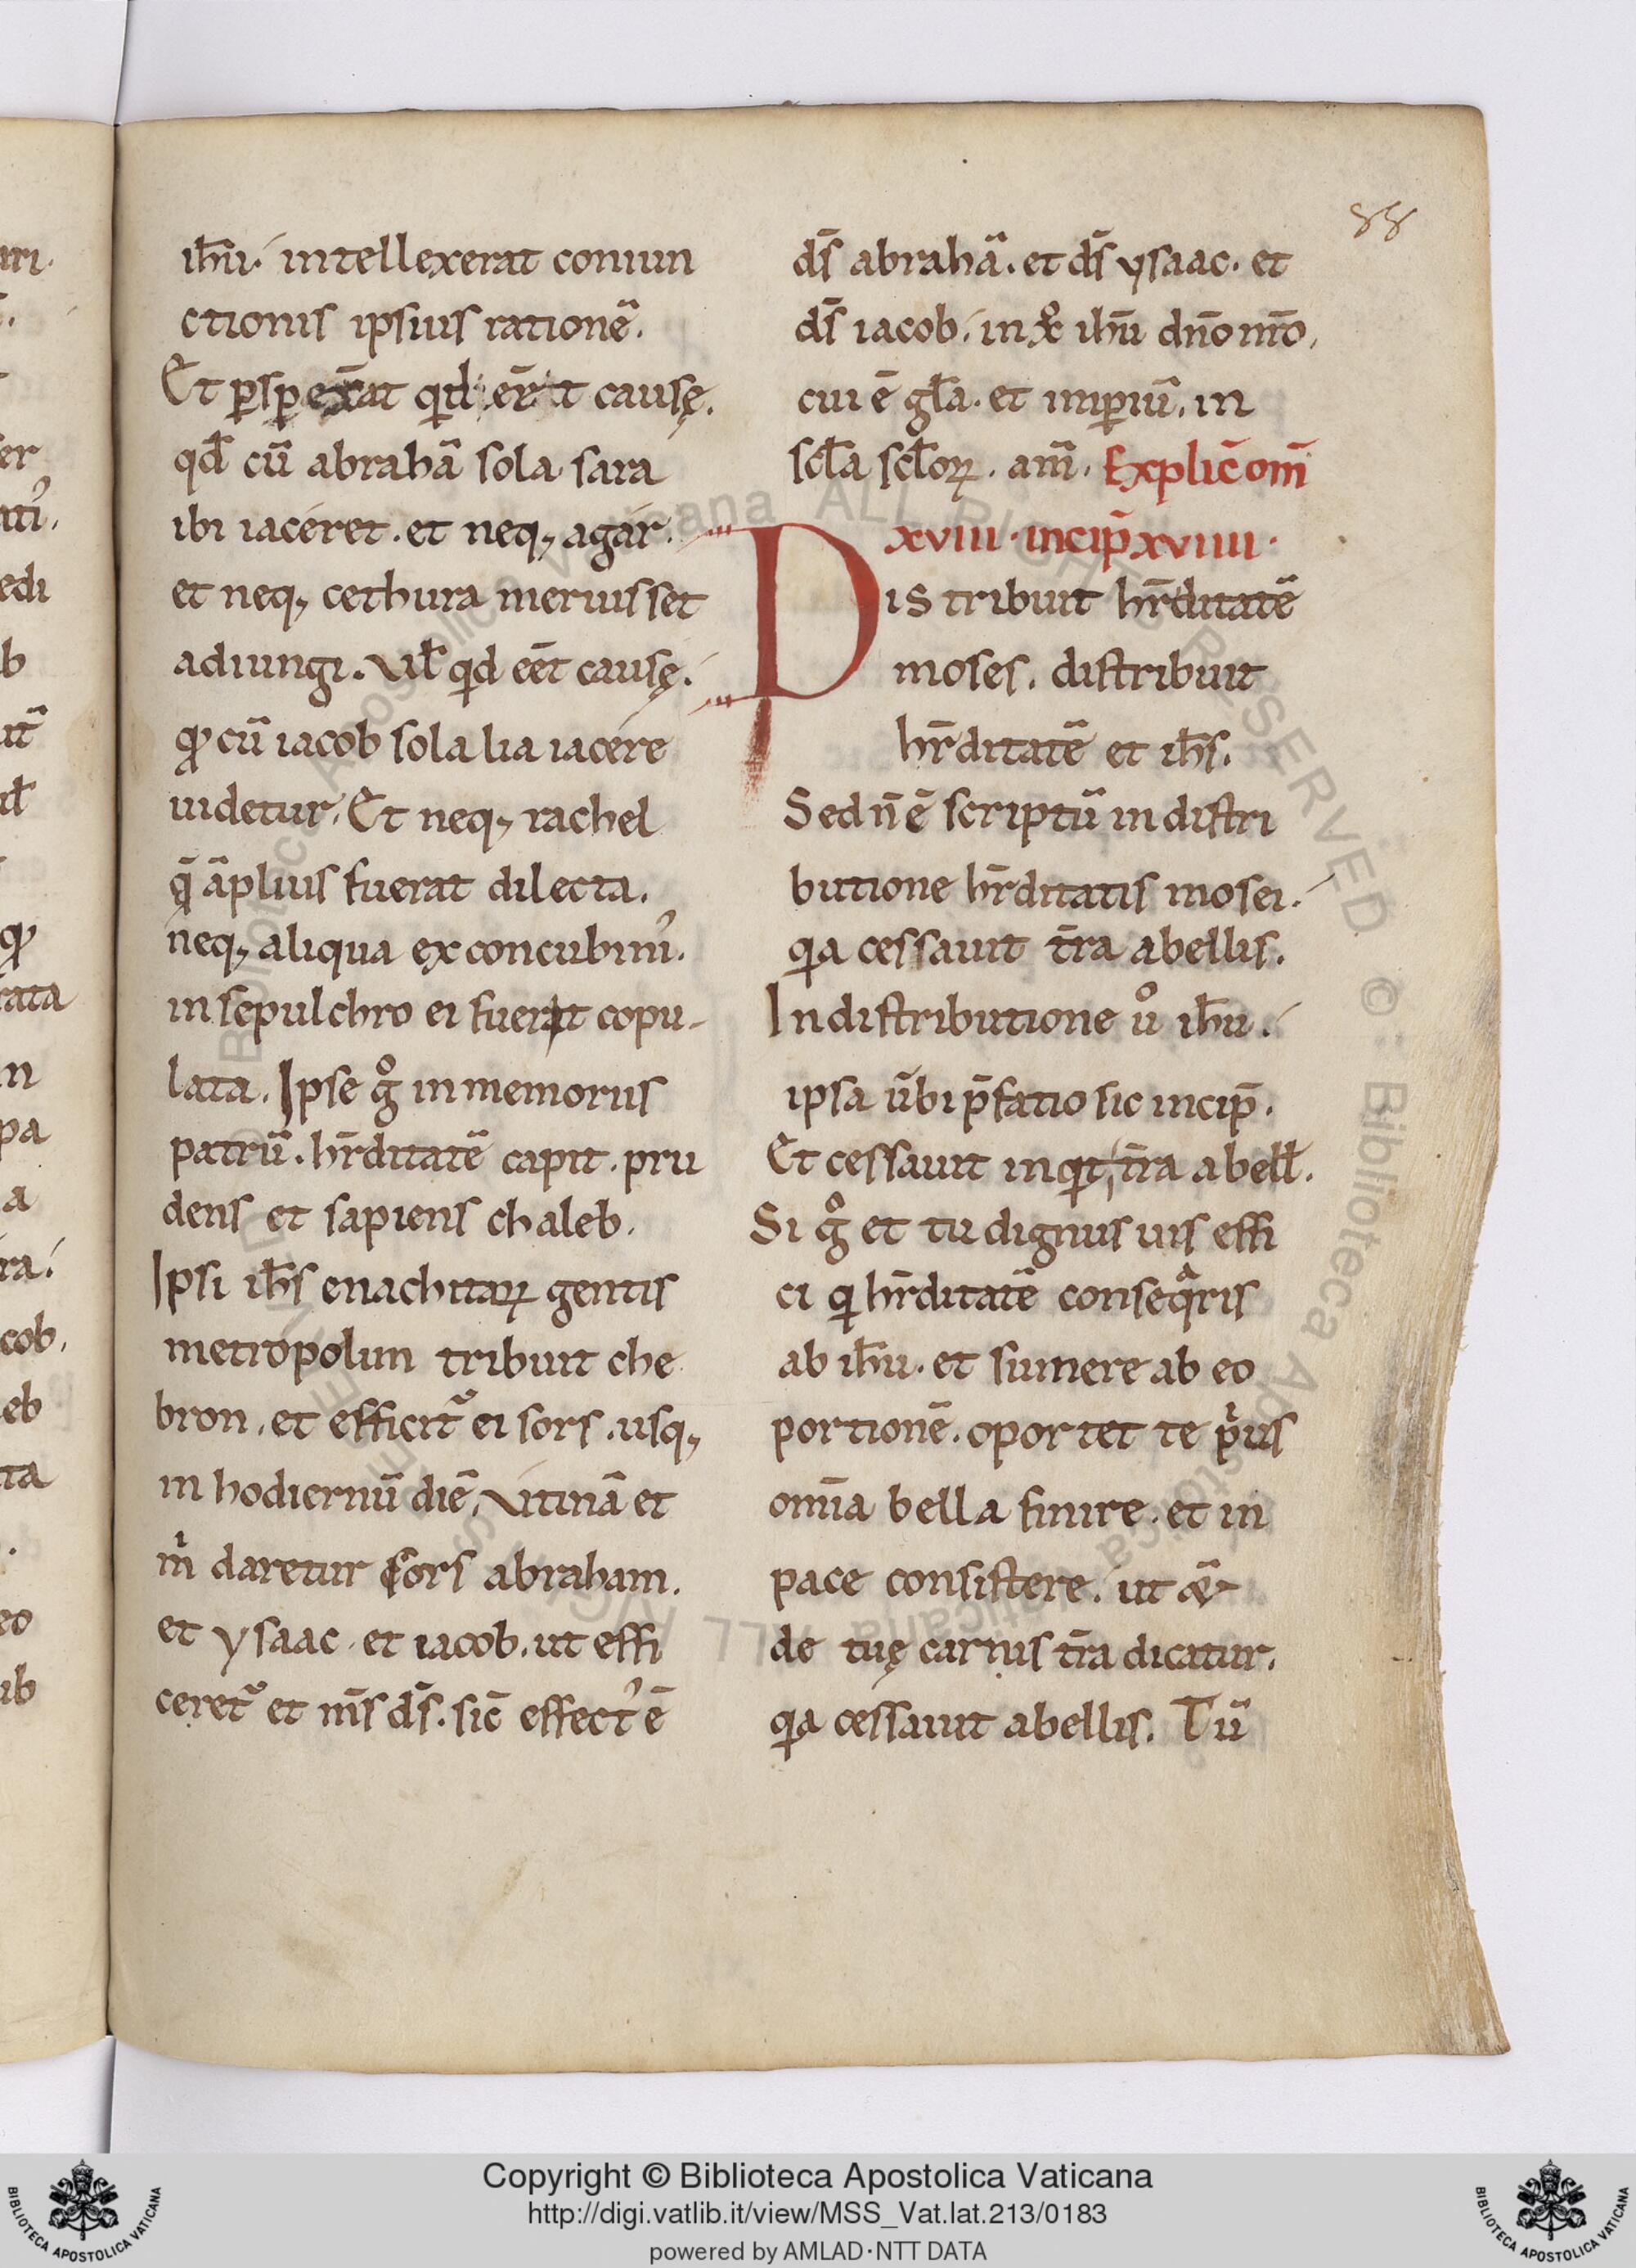 ih̅u. intellexerat coniun
ctionis ipsius ratione̅.
Et ꝑspexerat qid er̅ t causę.
qd̅ cu̅ abraha̅ sola sara
ibi iaceret. et neq; agar.
et neq; cethura meruisset
adiungi. Vil̅ qid eet̅ causę.
ꝙ cu̅ iacob sola lia iacere
uidetur. Et neq; rachel
q̅ a̅plius fuerat dilecta.
neq; aliqua ex concubini᾽.
in sepulchro ei fuerit copu-
lata. Ipse gͦ in memoriis
patru̅. hr̅ditate̅ capit. pru
dens et sapiens chaleb.
Ipsi ih̅s enachitaꝝ gentis
metropolun tribuit che
bron. et efficit᷑ ei sors. usq;
in hodiernu̅ die̅. Vtina̅ et
mⁱ daretur sors abraham.
et ysaac. et iacob. ut effi
ceret᷑ et n̅s d̅s. sic̅ effect᾽ e̅
d̅s abraha̅. et d̅s ysaac. et
d̅s iacob. in xͦ ih̅u dn̅o nr̅o.
cui e̅ gl̅a. et imꝑiu̅. in
scl̅a scl̅oꝝ. am̅. Explic̅ om̅
xviii. incip̅ xviiii.
Distribuit hr̅ditate̅
moses. distribuit
hr̅ditate̅ et ih̅s.
Sed n̅ e̅ scriptu̅ in distri
butione hr̅ditatis mosei.
qia cessauit t̅ra abellis.
In distributione uͦ ih̅u.
ipsa u̅bi p̅fatio sic incip̅.
Et cessauit inqit, t̅ra abell̅.
Si gͦ et tu dignus uis effi
ci qi hr̅ditate̅ conseqᵃris
ab ih̅u. et sumere ab eo
portione̅. oportet te pⁱus
om̅ia bella finire. et in
pace consistere. ut &
de tuę carnis t̅ra dicatur.
qia cessauit abellis. Tu̅
88
Copyright © Biblioteca Apostolica Vaticana
http://digi.vatlib.it/view/MSS_Vat.lat.213/0183
powered by AMLAD·NTT DATA